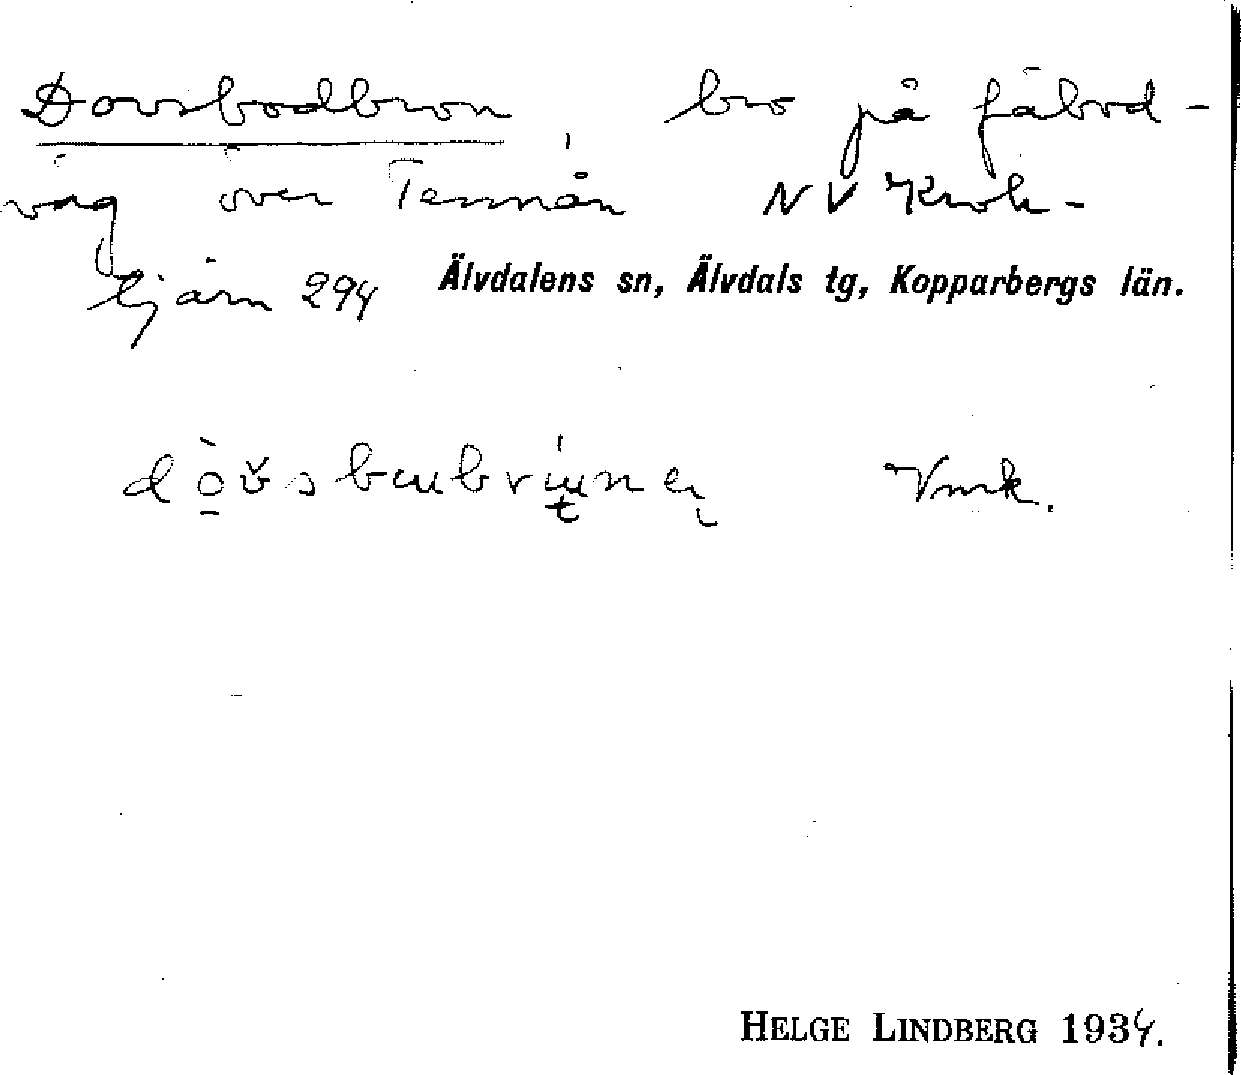 Dovsbodbron, bro på fäbod-
väg över Tennån NV Krok-
tjärn 294 Älvdalens sn, Älvdals tg, Kopparbergs län.
Vmk.
HELGE LINDBERG 1934.